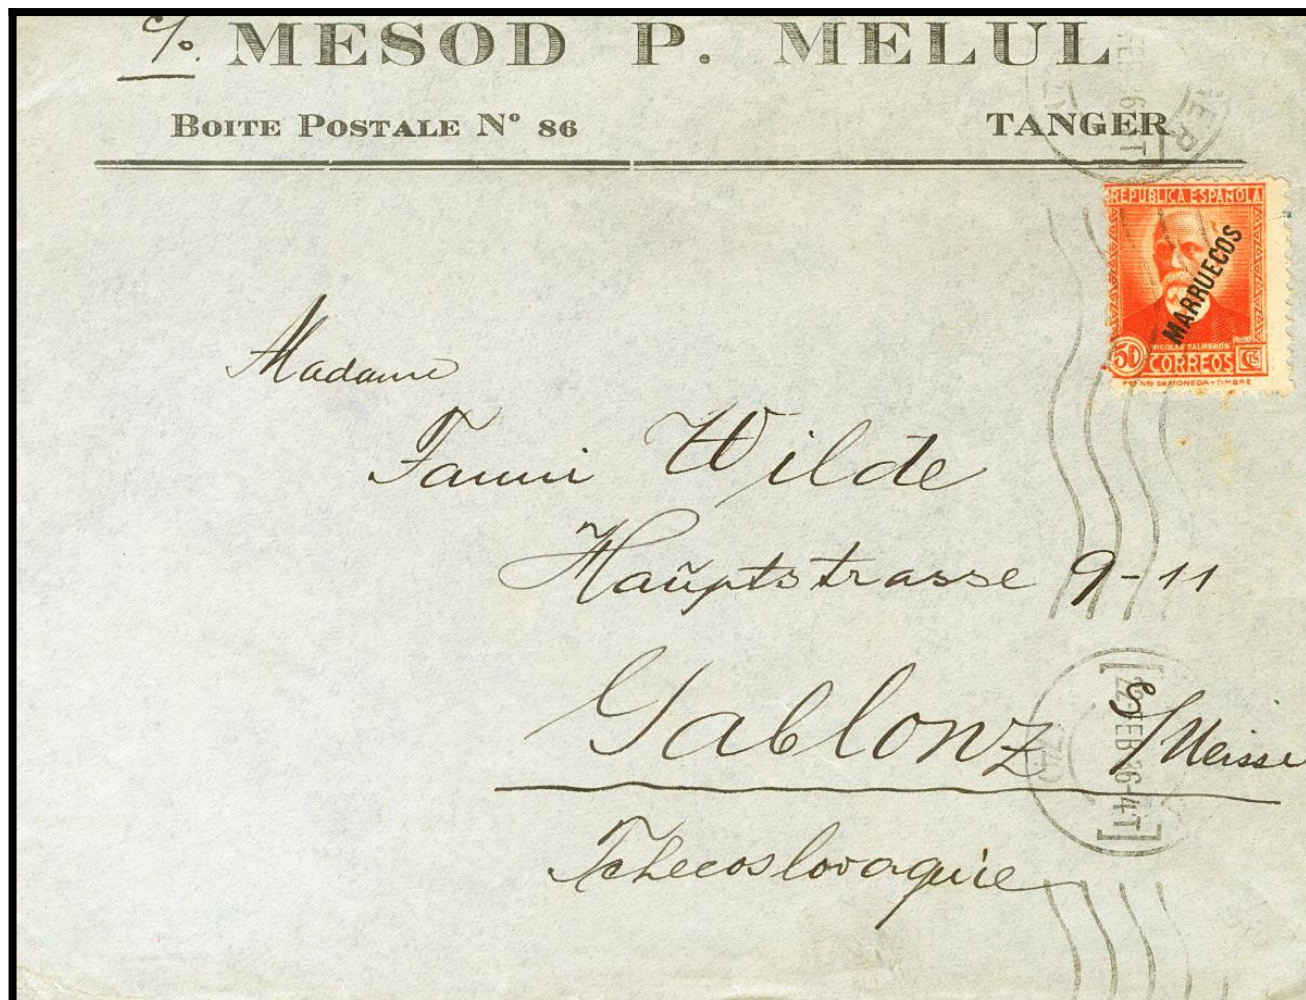 c/o. MESOD P. MELUL
BOITE POSTALE N° 86
TANGER
REPUBLICA ESPAÑOLA
MARRUECOS
NICOLAS SALMERON
50 CORREOS CTS
Madame
Fanni Wilde
Hauptstrasse 9-11
Gablonz s/Neisse
22 FEB 36-4T
Tchecoslovaquie